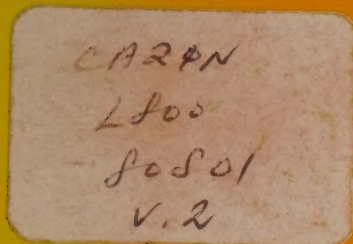 CARON
L800
80801
V.2